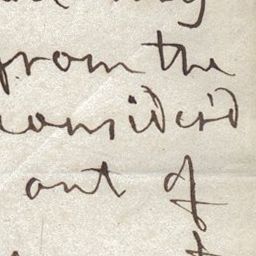 from the
consider'd
out of